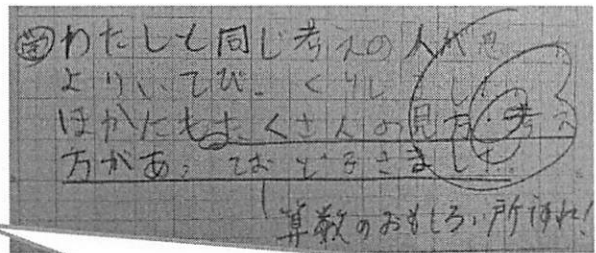 ㋕わたしと同じ考えの人が思
よりいてび っくりしました
ほかにもたくさんの見方・考え
方があっておどろきました
算数のおもしろい所ですね!